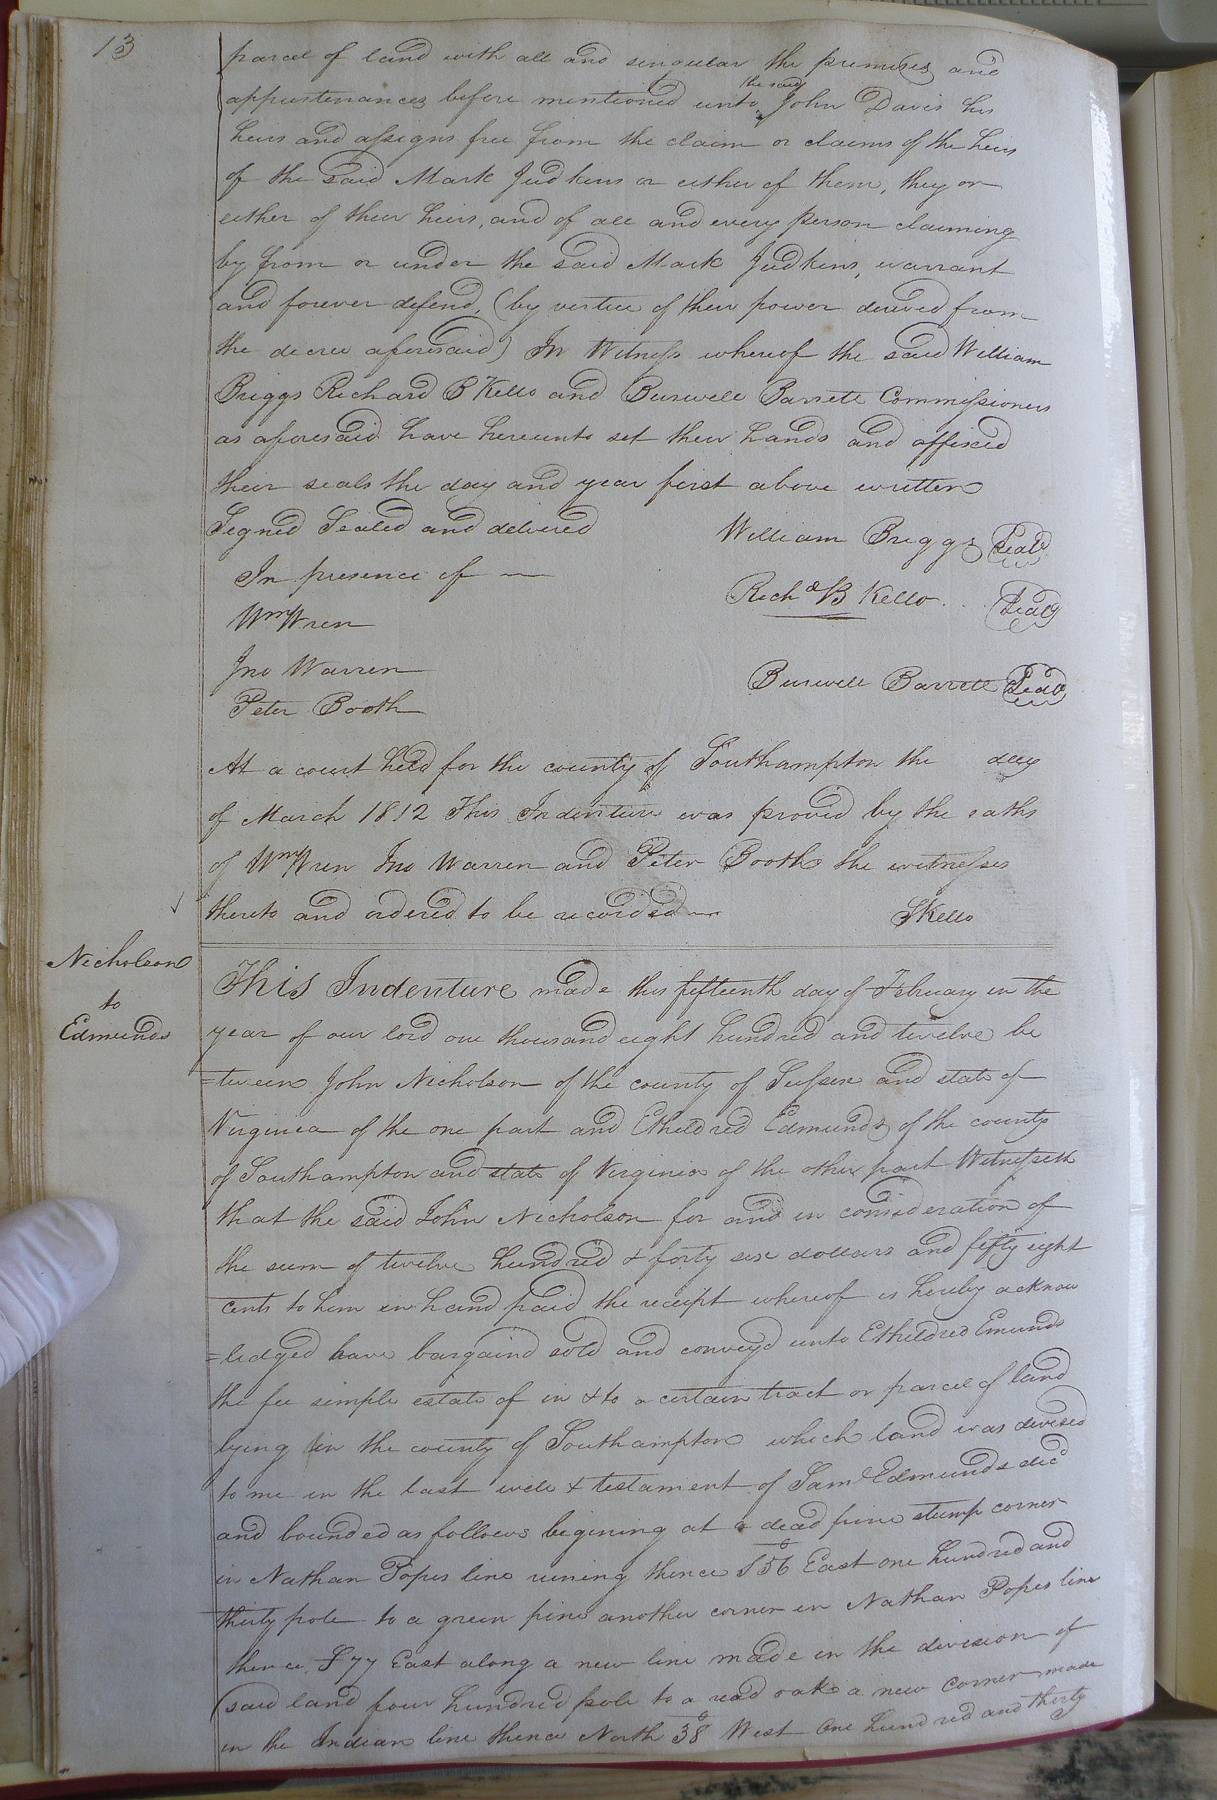 13
parcel of land with all and singular the premises and
appurtenances before mentioned unto the said John Davis his
heirs and assigns free from the claim or claims of the heirs
of the said Mark Judkins or either of them, they or
either of their heirs, and of all and every person claiming
by from or under the said Mark Judkins, warrant
and forever defend, (by vertue of their power derived from
the decree aforesaid) In Witness whereof the said William
Briggs Richard B Kello and Burwell Barrett Commissioners
as aforesaid have hereunto set their hands and affixed
their seals the day and year first above written
Signed Sealed and delivered
William Briggs Seal
In presence of
Richd B Kello Seal
Wm Wren
Jno Warren
Burwell Barrett Seal
Peter Booth
At a court held for the county of Southampton the day
of March 1812 This Indenture was proved by the oaths
of Wm Wren Jno Warren and Peter Booth the witnesses
thereto and ordered to be recorded
SKello
Nicholson
to
Edmunds
This Indenture made this fifteenth day of February in the
year of our lord one thousand eight hundred and twelve be
=tween John Nicholson of the county of Sussex and state of
Virginia of the one part and Etheldred Edmunds of the county
of Southampton and state of Virginia of the other part Witnesseth
that the said John Nicholson for and in consideration of
the sum of twelve hundred & forty six dollars and fifty eight
cents to him in hand paid the receipt whereof is hereby acknow
=ledged have bargaind sold and convey'd unto Etheldred Emunds
the fee simple estate of in & to a certain tract or parcel of land
lying in the county of Southampton which land was devised
to me in the last will & testament of Saml Edmunds decd
and bounded as follows begining at a dead pine stump corner
in Nathan Popes line runing thence S 56° East one hundred and
thirty pole to a green pine another corner in Nathan Popes line
thence S 77 East along a new line made in the division of
said land four hundred pole to a read oak a new corner made
in the Indian line thence North 38° West One hundred and thirty